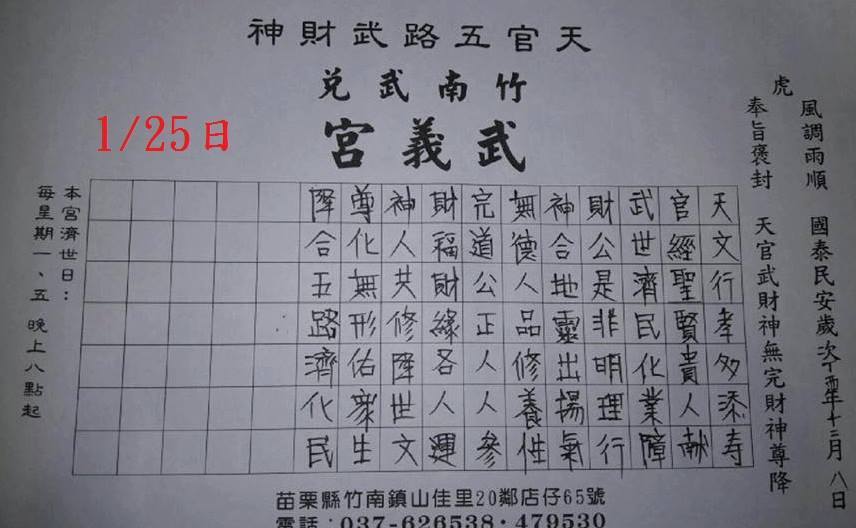 天官五路武財神
竹南武兌
武義宮
1/25日
虎
風調雨順 國泰民安歲次丁酉年十二月八日
奉旨褒封 天官武財神無完財神尊降
天文行孝多添寿
官經聖賢貴人献
武世濟民化業障
財公是非明理行
神合地靈出揚氣
無德人品修養性
完道公正人人參
財福財緣各人運
神人共修降世文
尊化無形佑眾生
降合五路濟化民
本宮濟世日：
每星期一、五 晚上八點起
苗栗縣竹南鎮山佳里20鄰店仔65號
電話：037-626538·479530